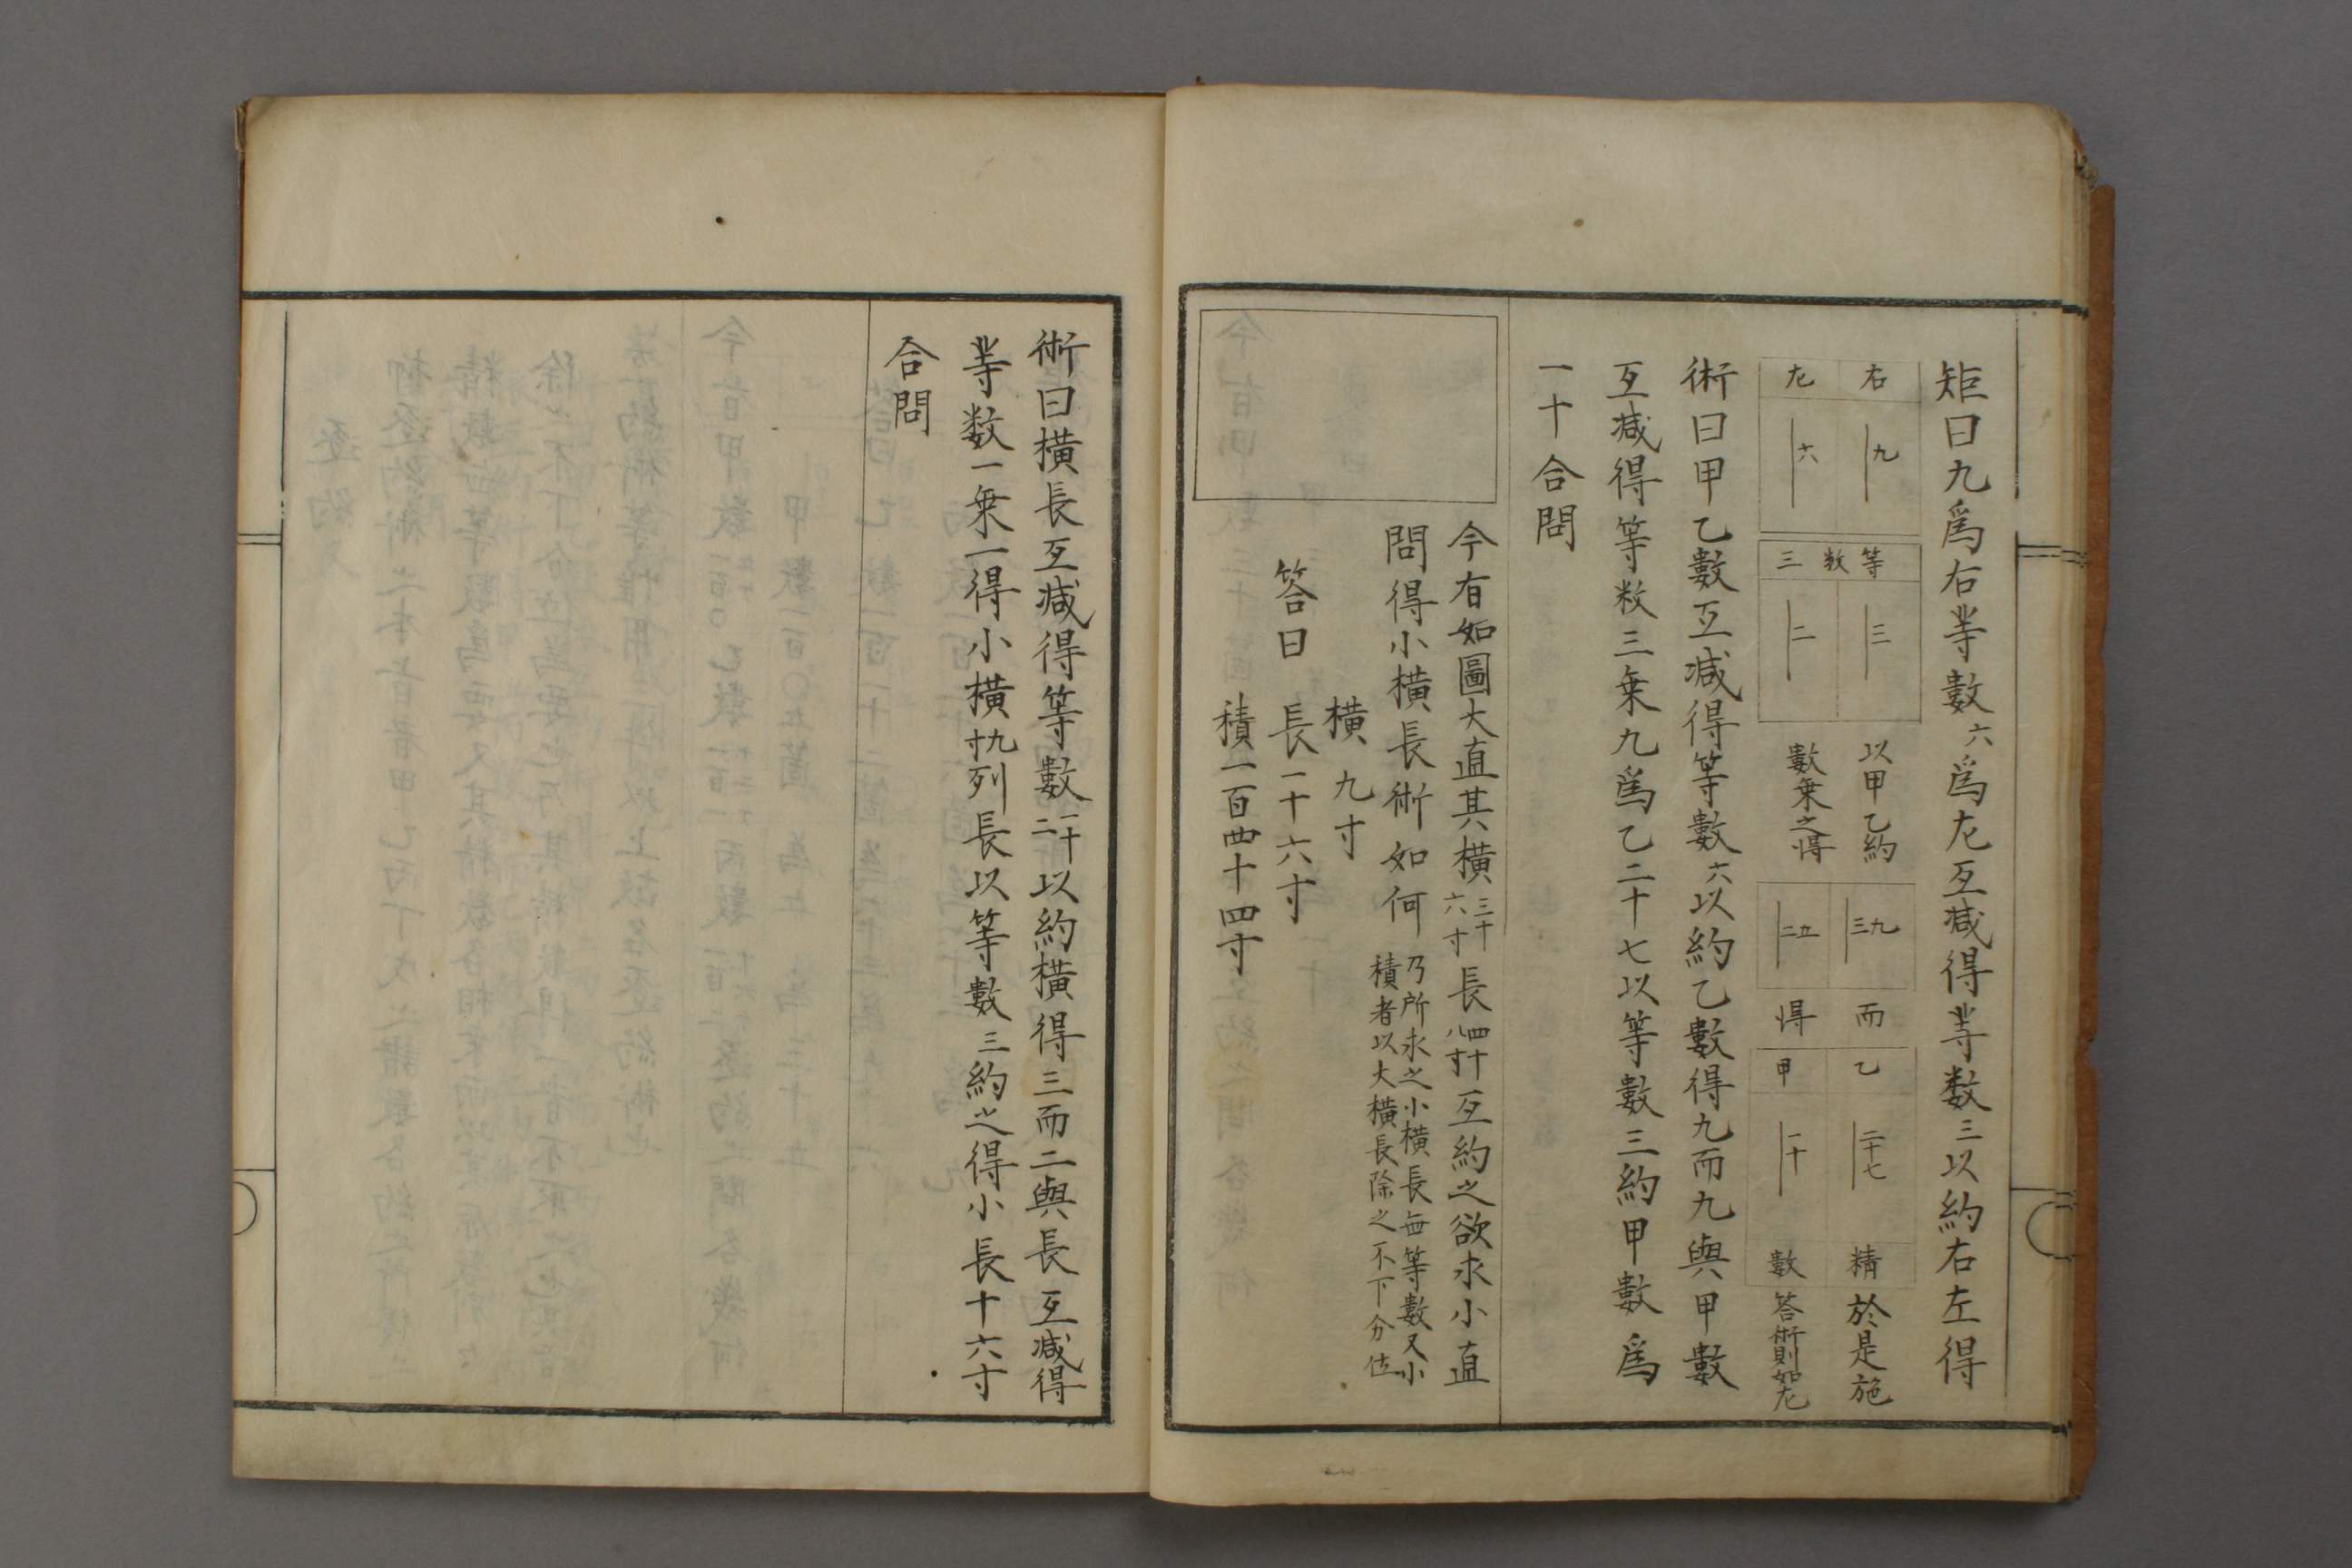 矩曰九爲右等數六爲左互減得等数三以約右左得
右 左
九 六
等数三
三 二
以甲乙約
數乗之得
三九 二五
而 得
乙 甲
二十七 一十
精 數
於是施
答術則如左
術曰甲乙數互減得等數六以約乙數得九而九與甲數
互減得等数三乗九爲乙二十七以等數三約甲數爲
一十合問
今有如圖大直其横三十六寸長四十八寸互約之欲求小直
問得小横長術如何乃所求之小横長無等數又小
積者以大横長除之不下分位
横九寸
答曰 長一十六寸
積一百四十四寸
術曰横長互減得等數一十二以約横得三而二與長互減得
等数一乗一得小横九寸列長以等數三約之得小長十六寸
合問